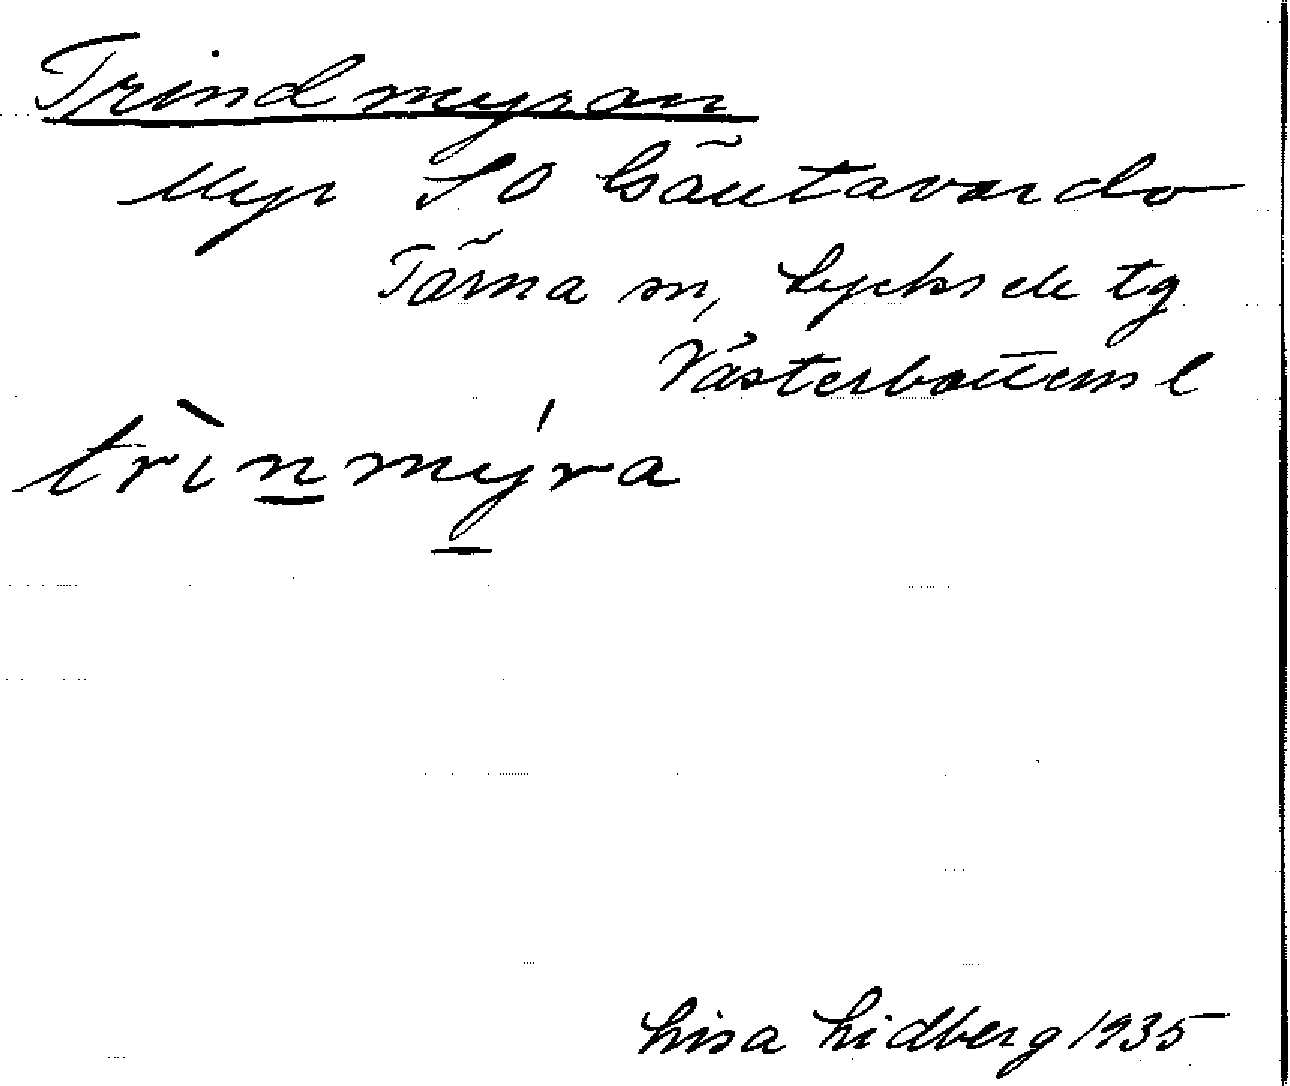 Trindmyran
Myr SO Gäutavardo
Tärna sn, Lycksele tg
Västerbottens l
trìnmýra
Lisa Lidberg 1935